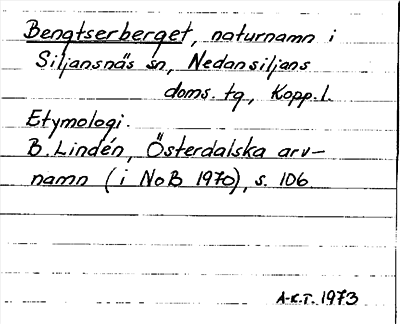 Bengtserberget, naturnamn i
Siljansnäs sn, Nedansiljans
doms. tg, Kopp. l.
Etymologi.
B. Lindén, Österdalska arv-
namn (i NoB 1970), s. 106
A-K.T. 1973